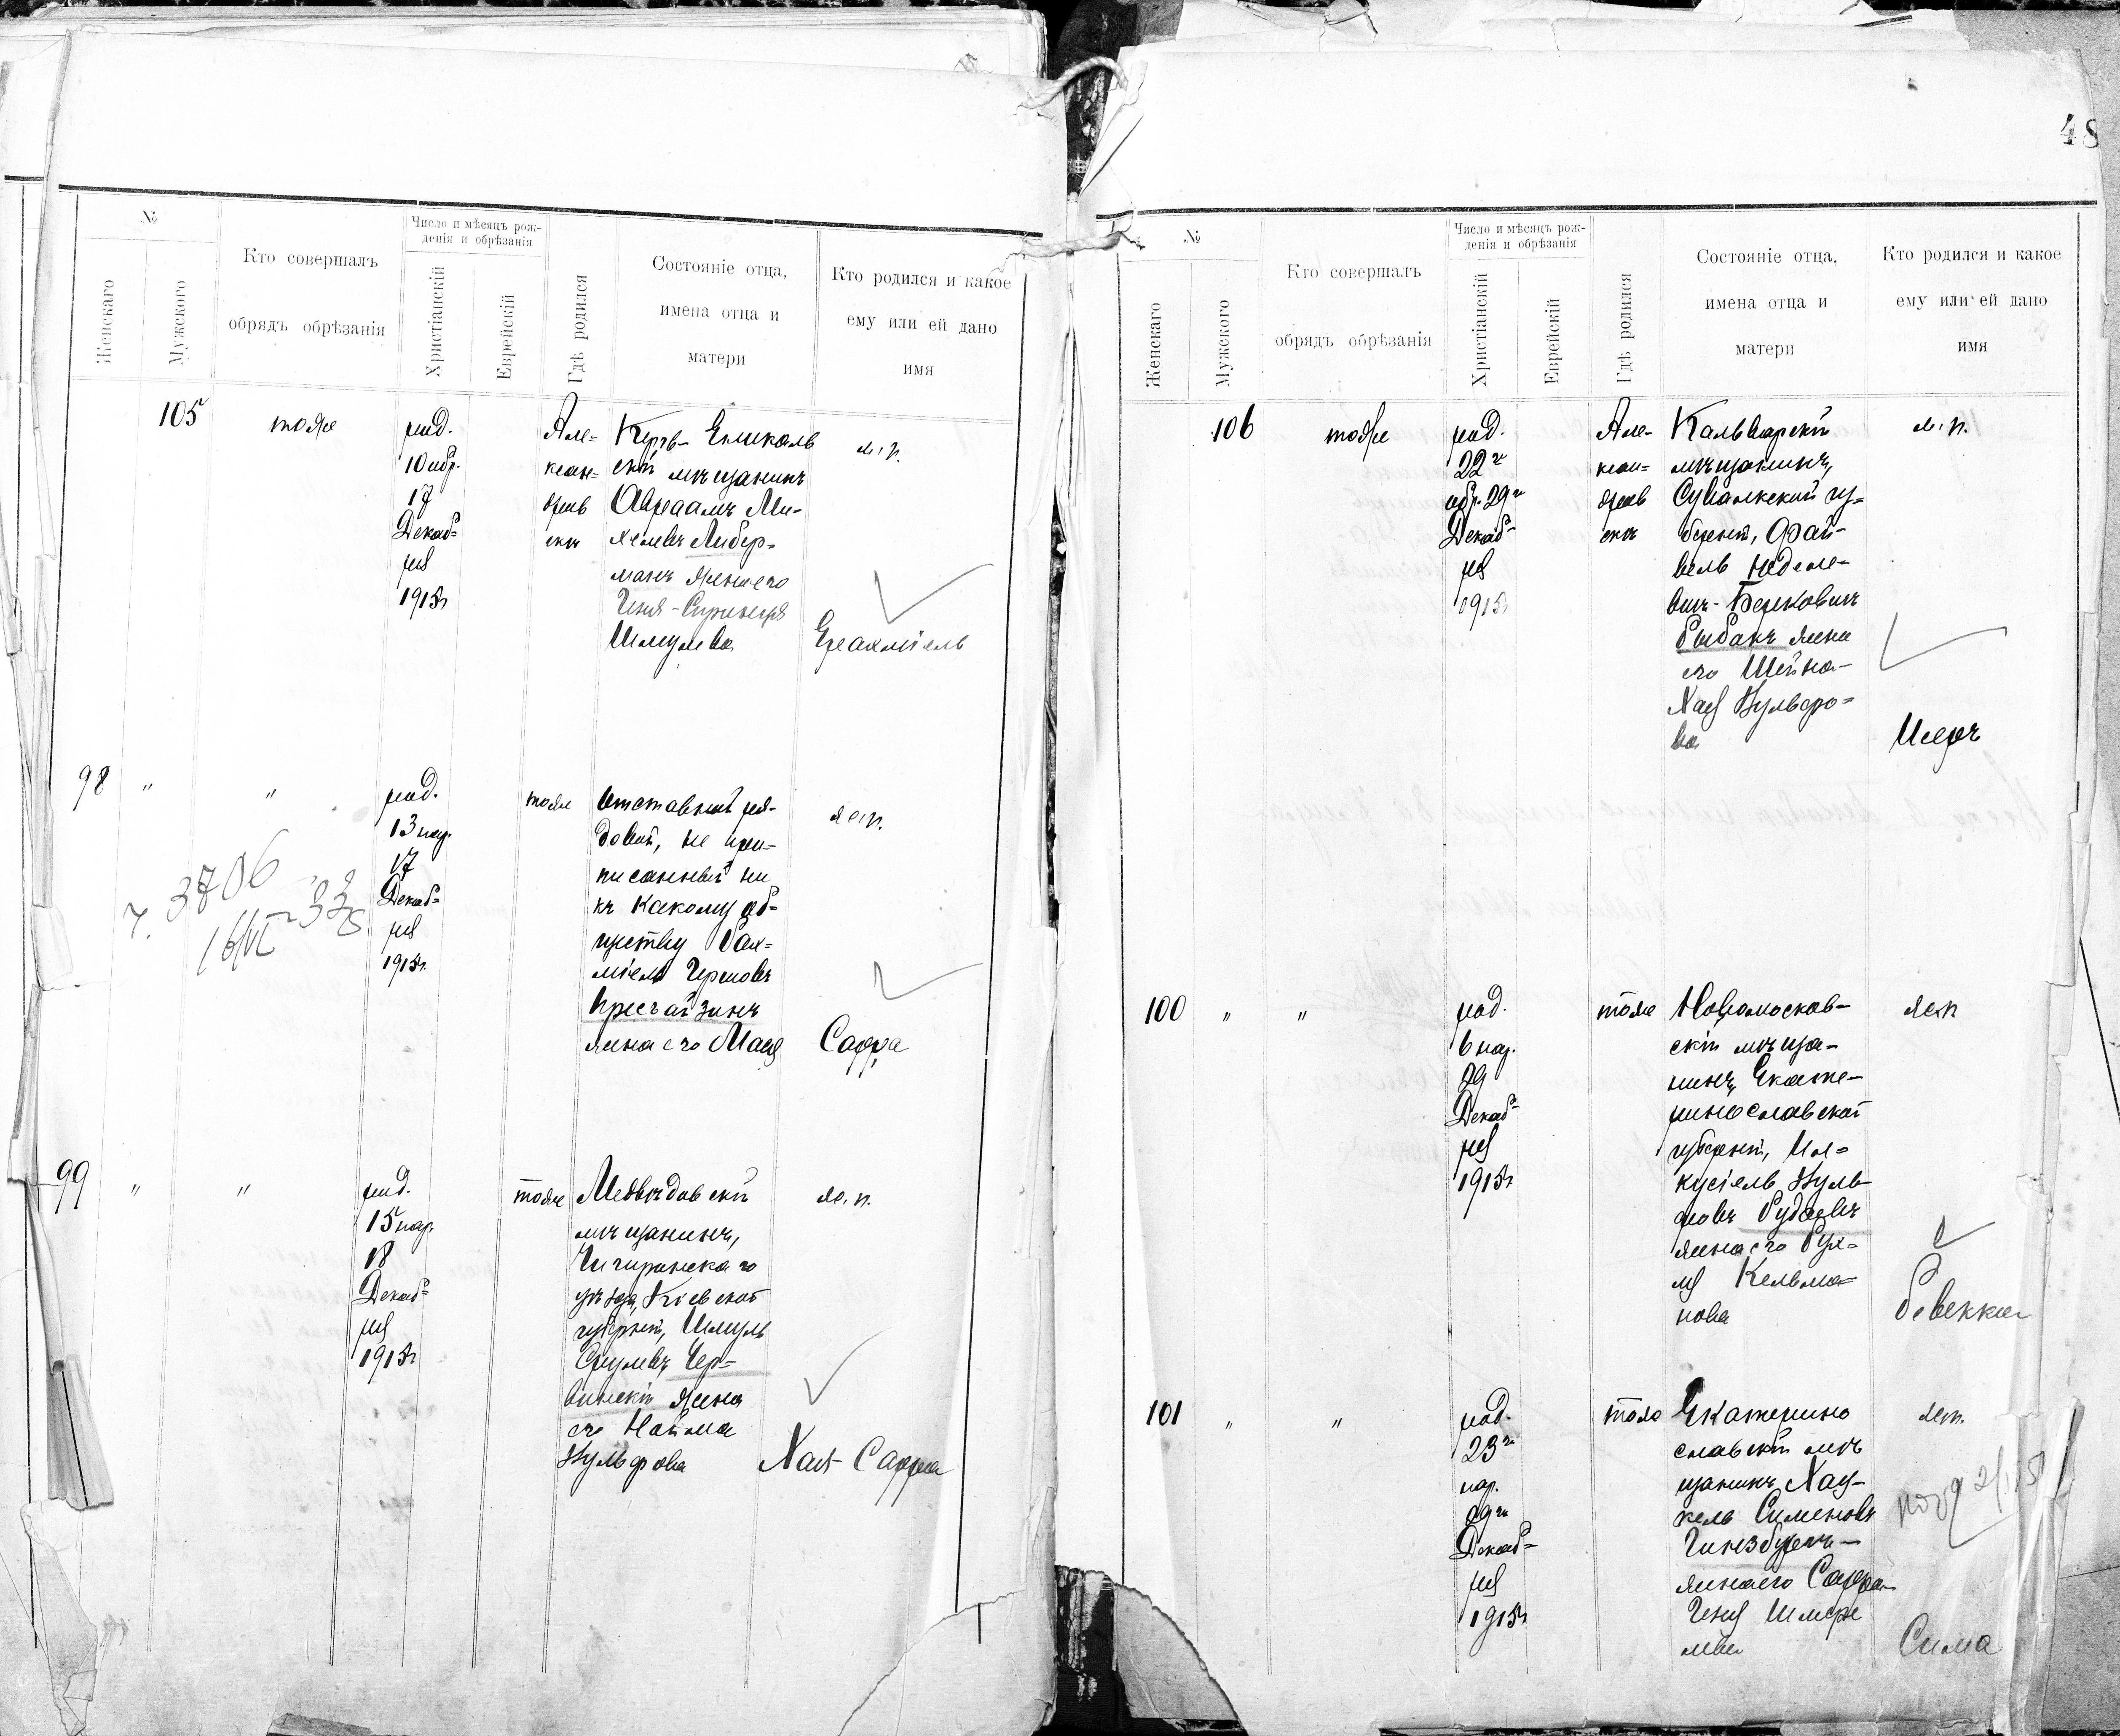 48
№
Женскаго
Мужского
Кто совершалъ
обрядъ обрѣзанія
Число и мѣсяцъ рож-
денія и обрѣзанія
Христіанскій
Еврейскій
Гдѣ родился
Состояніе отца,
имена отца и
матери
Кто родился и какое
ему или ей дано
имя
105
тоже
род.
10 обр.
17
Декаб=
ря
1915г
Але-
ксан=
дров
скъ
Керчь-Еникаль
скій мѣщанинъ
Авраамъ Ми-
хелевъ Либер=
манъ жена его
Геня-Спринця
Шмулева
м.п.
Ерахміель
98
"
"
род.
13 нар.
17
Декаб=
ря
1915г.
тоже
Отставной ря-
довой, не при-
писанный ни
къ какому об-
ществу Рах=
міель Гершовъ
жена его Мася
ж.п.
Сарра
3706
99
"
"
род.
15 нар.
18
Декаб=
ря
1915г
тоже
Медвѣдовскій
мѣщанинъ,
Чигиринскаго
уѣзда, Кіевской
губерніи, Шмуль
Срулевъ Чер=
винскій жена
его Нойма
Вульфова
ж.п.
Хая-Сарра
№
Женскаго
Мужского
Кто совершалъ
обрядъ обрѣзанія
Число и мѣсяцъ рож-
денія и обрѣзанія
Христіанскій
Еврейскій
Гдѣ родился
Состояніе отца,
имена отца и
матери
Кто родился и какое
ему или ей дано
имя
106
тоже
род.
22го
обр. 29го
Декаб=
ря
1915г
Але-
ксан=
дров
скъ
Кальварскій
мѣщанинъ,
Сувалкской гу=
берніи, Фай-
вель
Берковичъ
Рыбакъ жена
его Шейна-
Хая Вульфо=
ва
м.п.
Исеръ
100
"
"
род.
6 нар.
29
Декаб=
ря
1915г
тоже
Новомосков-
скій мѣща-
нинъ, Екате-
ринославской
губерніи, Иа=
кусіель Вуль-
фовъ Рудаевъ
жена его Рух=
ля Кельма-
нова
ж.п
Ревекка
101
"
"
род.
23го
нар.
29го
Декаб=
ря
1915г
тоже
Екатерино
славскій мѣ
щанинъ Хац-
кель Симоновъ
Гинзбургъ-
жена его Сарра-
Геня Шмере
лева
ж.п.
Сима